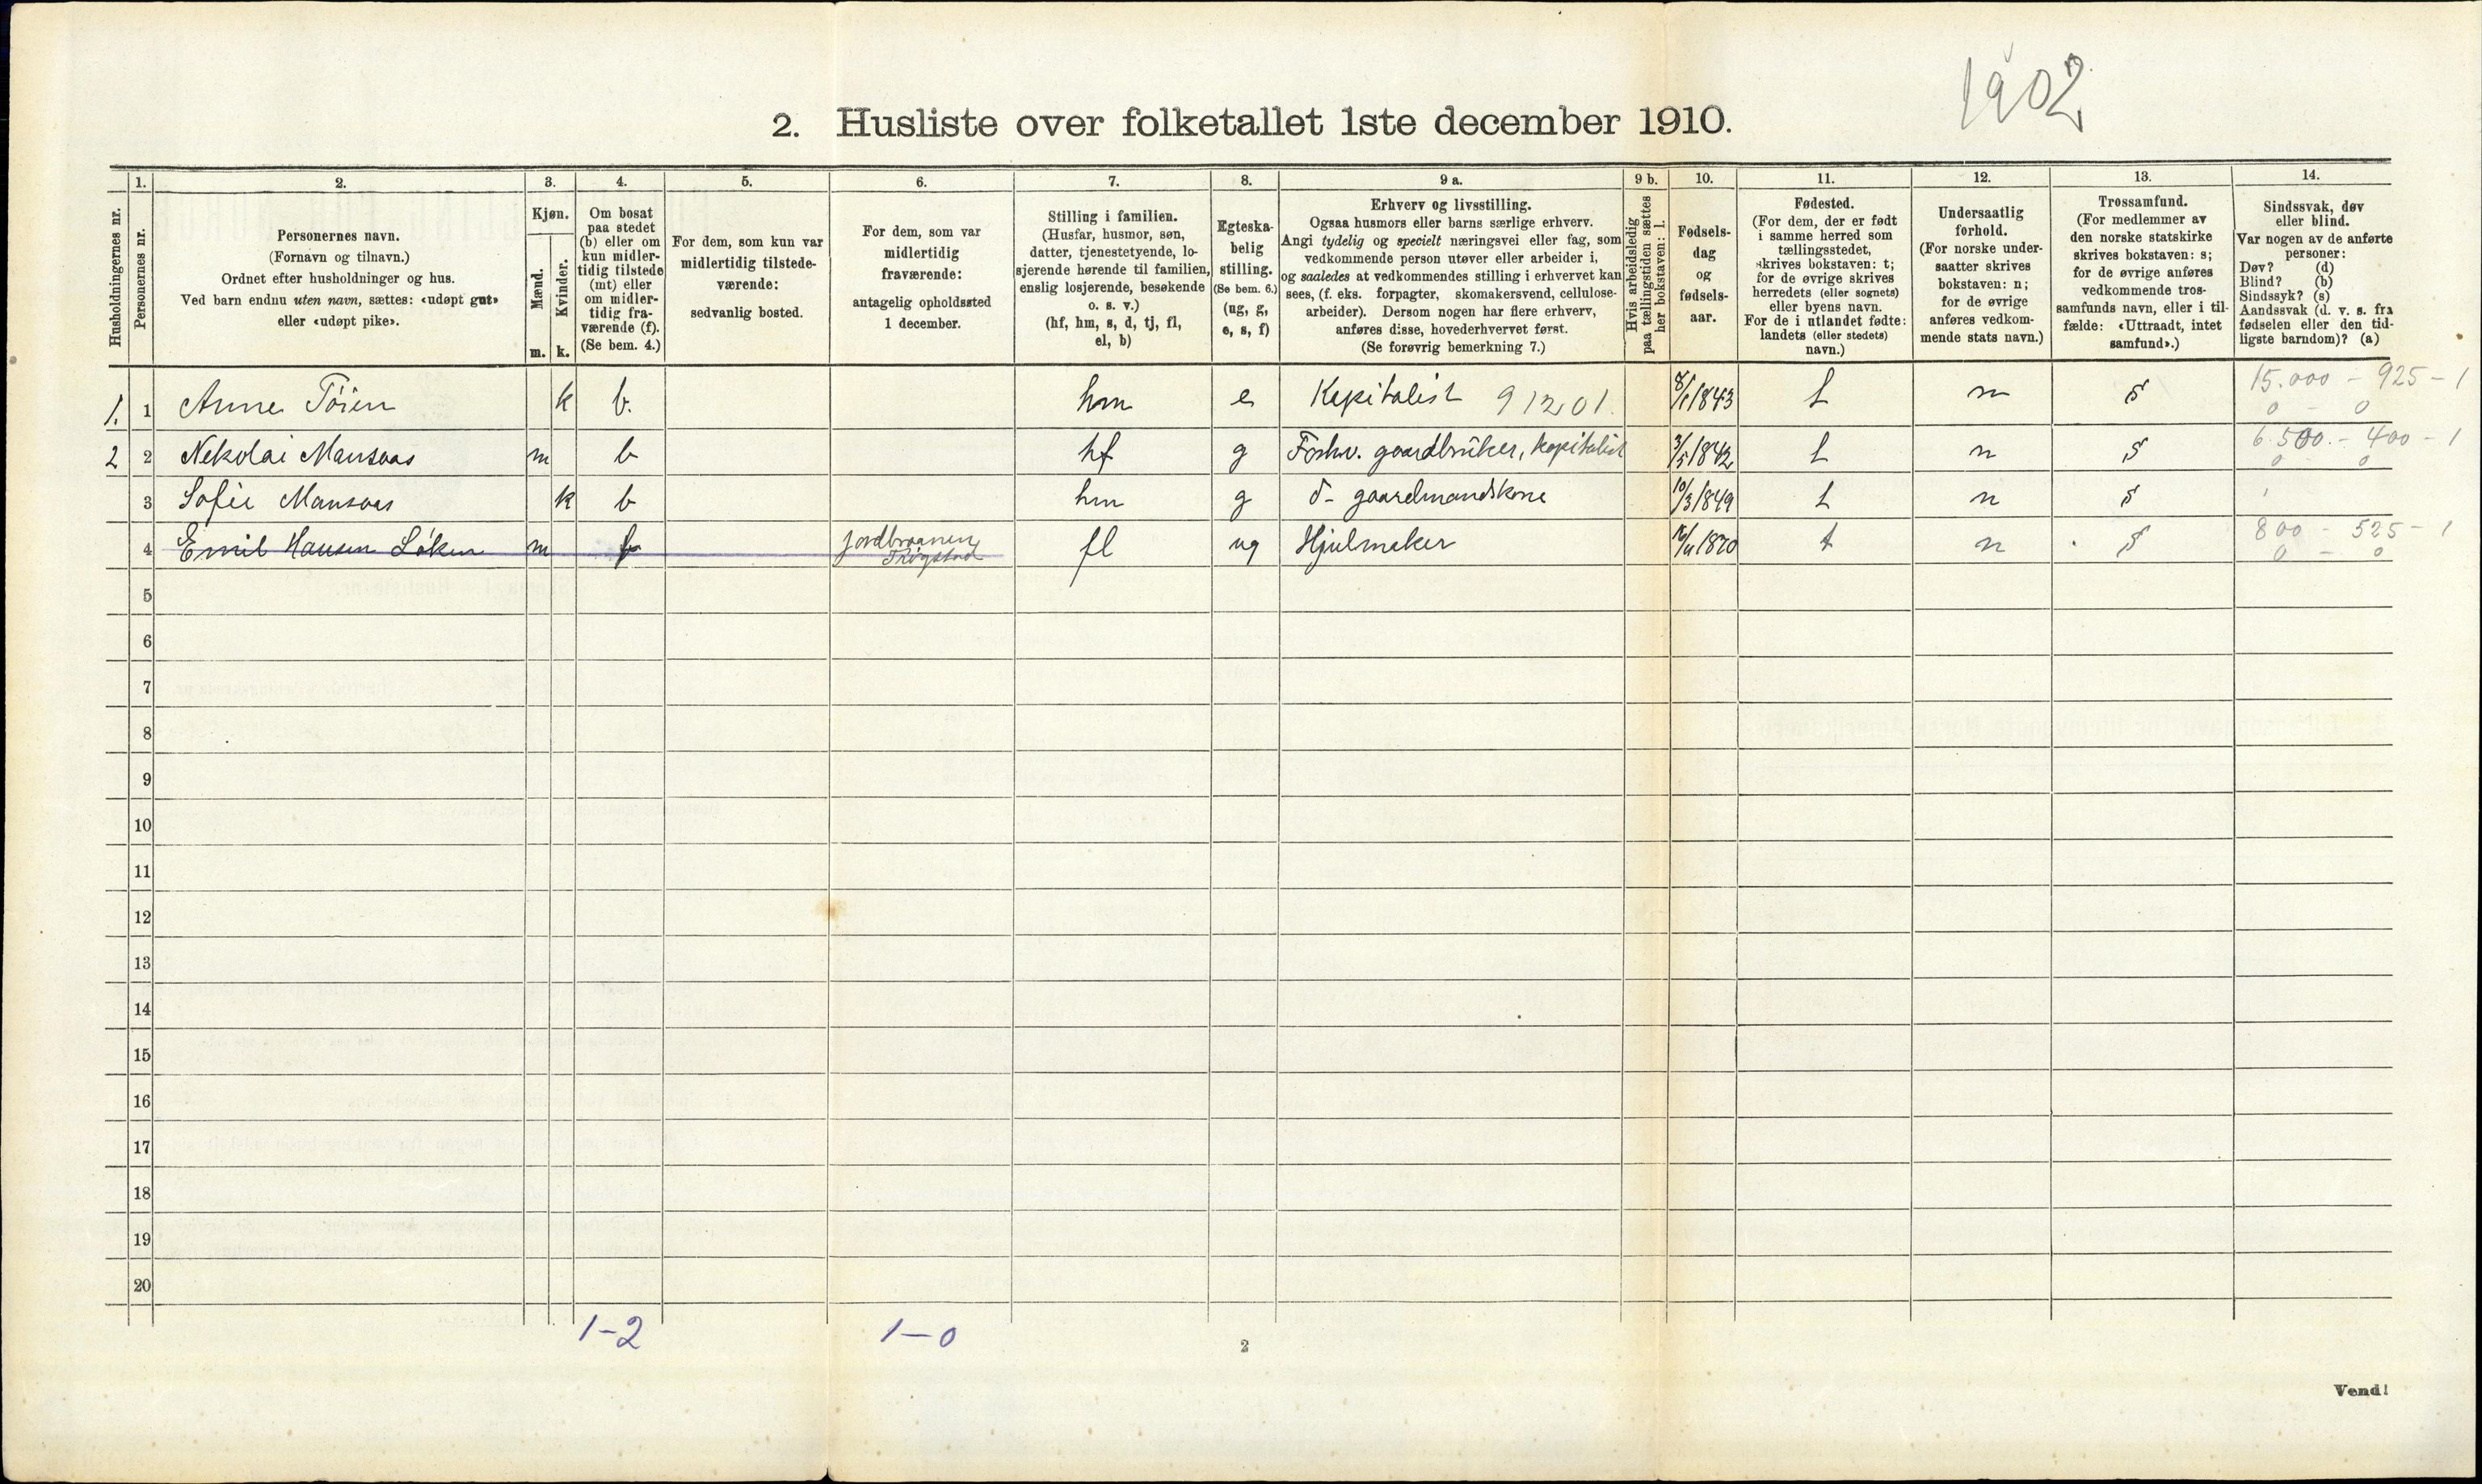 1902
2. Husliste over folketallet 1ste december 1910.
Husholdningernes nr.
1.
Personernes nr.
2.
Personernes navn.
(Fornavn og tilnavn.)
Ordnet efter husholdninger og hus.
Ved barn endnu uten navn, sættes: «udøpt gut»
eller «udøpt pike».
3.
Kjøn.
Mænd.
Kvinder.
m. k.
4.
Om bosat
paa stedet
(b) eller om
kun midler-
tidig tilstede
(mt) eller
om midler-
tidig fra-
værende (f).
(Se bem. 4.)
5.
For dem, som kun var
midlertidig tilstede-
værende:
sedvanlig bosted.
6.
For dem, som var
midlertidig
fraværende:
antagelig opholdssted
1 december.
7.
Stilling i familien.
(Husfar, husmor, søn,
datter, tjenestetyende, lo-
sjerende hørende til familien,
enslig losjerende, besøkende
o. s. v.)
(hf, hm, s, d, tj, fl,
el, b)
8.
Egteska-
belig
stilling.
(Se bem. 6.)
(ug, g,
e, s, f)
9 a.
Erhverv og livsstilling.
Ogsaa husmors eller barns særlige erhverv.
Angi tydelig og specielt næringsvei eller fag, som
vedkommende person utøver eller arbeider i,
og saaledes at vedkommendes stilling i erhvervet kan
sees, (f. eks. forpagter, skomakersvend, cellulose-
arbeider). Dersom nogen har flere erhverv,
anføres disse, hovederhvervet først.
(Se forøvrig bemerkning 7.)
9 b.
Hvis arbeidsledig
paa tællingstiden sættes
her bokstaven: l.
10.
Fødsels-
dag
og
fødsels-
aar.
11.
Fødested.
(For dem, der er født
i samme herred som
tællingsstedet,
skrives bokstaven: t;
for de øvrige skrives
herredets (eller sognets)
eller byens navn.
For de i utlandet fødte:
landets (eller stedets)
navn.)
12.
Undersaatlig
forhold.
(For norske under-
saatter skrives
bokstaven: n;
for de øvrige
anføres vedkom-
mende stats navn.)
13.
Trossamfund.
(For medlemmer av
den norske statskirke
skrives bokstaven: s;
for de øvrige anføres
vedkommende tros-
samfunds navn, eller i til-
fælde: «Uttraadt, intet
samfund».)
14.
Sindssvak, døv
eller blind.
Var nogen av de anførte
personer:
Døv? (d)
Blind? (b)
Sindssyk? (s)
Aandssvak (d. v. s. fra
fødselen eller den tid-
ligste barndom)? (a)
1. 1 Anne Töien k b. hm e Kapitalist 91201. 8/1 1843 t n s 15.000 - 925 - 1
0 - 0
2 2 Nekolai Mansaas m b hf g Forhv. gaardbruker, kapitalist 3/5 1842 t n s 6.500. - 400 - 1
0 - 0
3 Sofie Mansaas k b hm g d- gaardmandskone 10/3 1849 t n s
4 Emil Hansen Löken m f Jordbraanen
Trögstad fl ug Hjulmaker 1870 t n s 800 - 525 - 1
0 - 0
5
6
7
8
9
10
11
12
13
14
15
16
17
18
19
20
1-2 1-0
2
Vend!